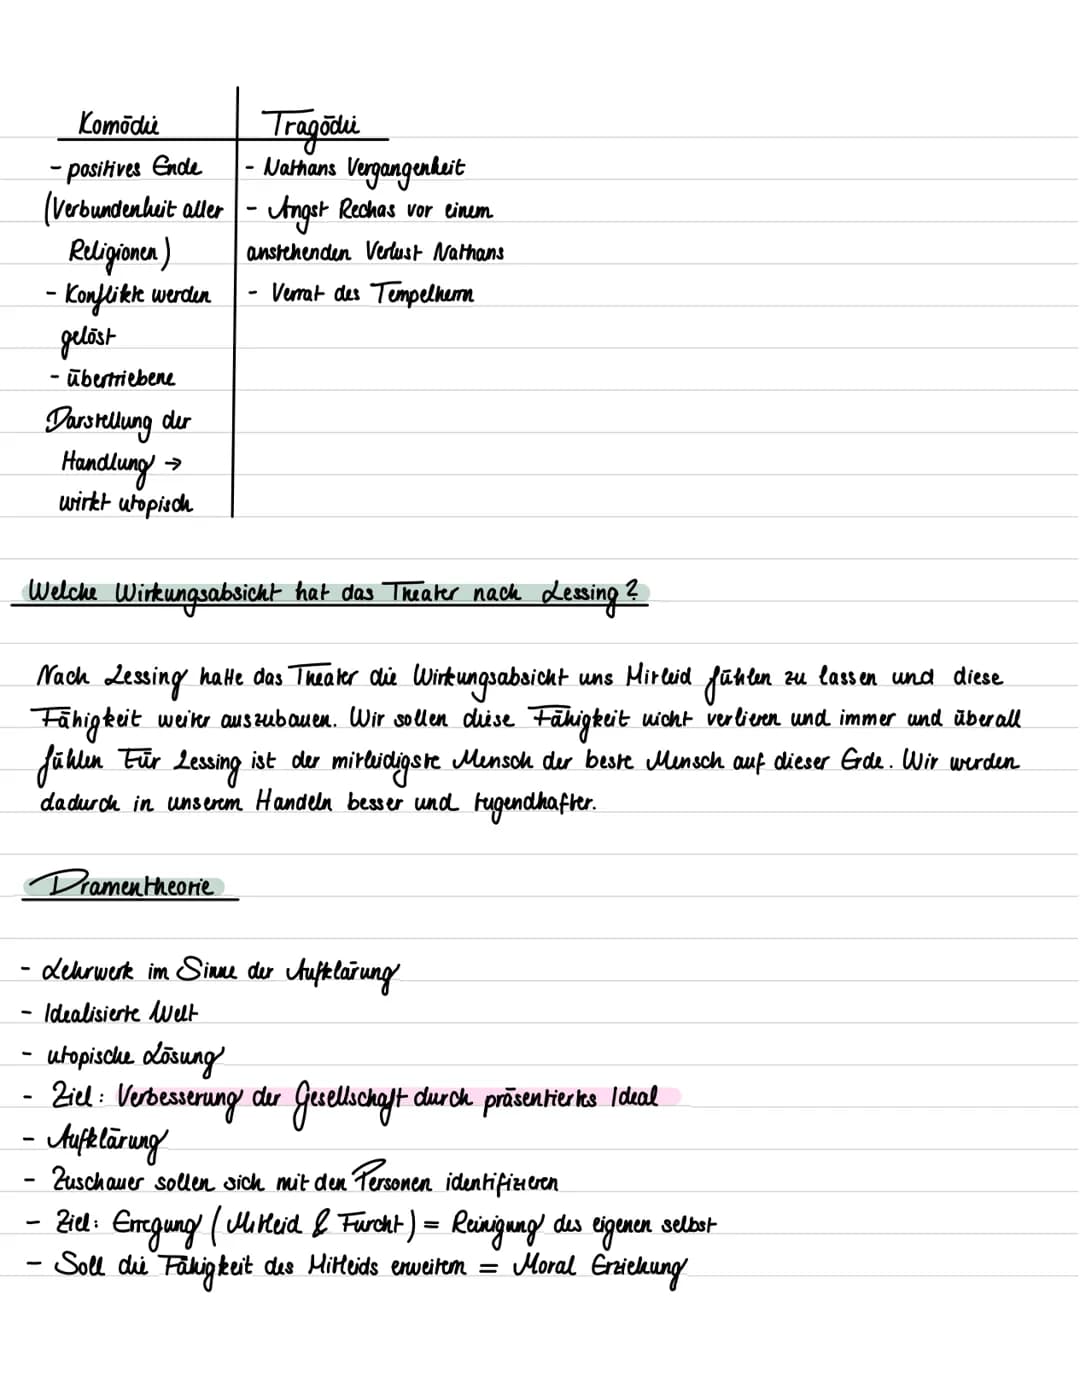 Komödie
- positives Ende
(Verbundenheit aller
Religionen)
- Konflikte werden
gelöst
- übertriebene
Darstellung der
Handlung →
wirkt utopisch
Tragödie
- Nathans Vergangenheit
- Angst Rechas vor einem
anstehenden Verlust Nathans
- Verrat des Tempelherrn
Welche Wirkungsabsicht hat das Theater nach Lessing?
Nach Lessing hatte das Theater die Wirkungsabsicht uns Mitleid fühlen zu lassen und diese
Fähigkeit weiter auszubauen. Wir sollen diese Fähigkeit nicht verlieren und immer und überall
fühlen Für Lessing ist der mitleidigste Mensch der beste Mensch auf dieser Erde. Wir werden
dadurch in unserem Handeln besser und tugendhafter.
Dramentheorie
- Lehrwerk im Sinne der Aufklärung
- Idealisierte Welt
- utopische Lösung
- Ziel: Verbesserung der Gesellschaft durch präsentiertes Ideal
- Aufklärung
- Zuschauer sollen sich mit den Personen identifizieren
- Ziel: Erregung (Mitleid & Furcht) = Reinigung des eigenen selbst
- Soll die Fähigkeit des Mitleids erweitern = Moral Erziehung